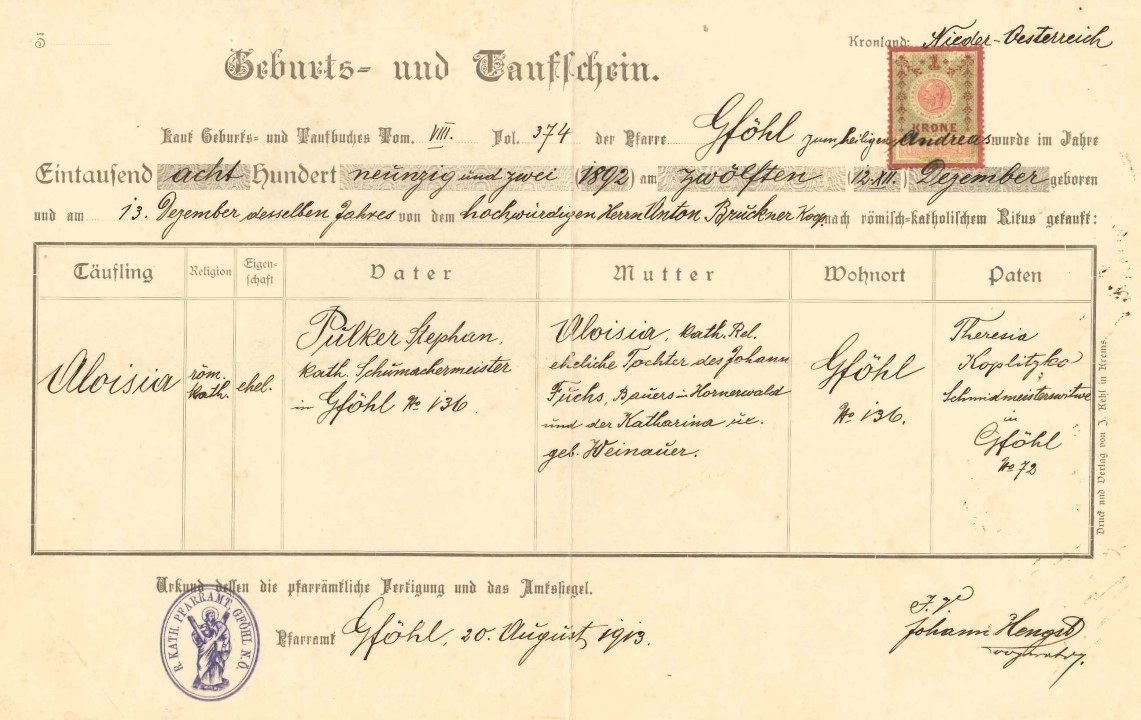 3
Kronland: Nieder-Oesterreich
Geburts- und Taufschein.
1
KRONE
Laut Geburts- und Taufbuches Tom. VIII. Fol. 374 der Pfarre Gföhl zum heiligen Andreas wurde im Jahre
Eintausend acht Hundert neunzig und zwei (1892) am zwölften (12. XII.) Dezember geboren
und am 13. Dezember desselben Jahres von dem hochwürdigen Herrn Anton Bruckner Koop. nach römisch-katholischem Ritus getauft:
Täufling
Religion
Eigen-
schaft
Vater
Mutter
Wohnort
Paten
Aloisia
röm.
kath.
ehel.
Pulker Stephan,
kath. Schumachermeister
in Gföhl No 136.
Aloisia, kath. Rel.
eheliche Tochter des Johann
Fuchs, Bauers in Hornerwald
und der Katharina ux.
geb. Weinauer.
Gföhl
No 136.
Theresia
Koplitzka
Schmidmeisterswitwe
in
Gföhl
No 72
Druck und Verlag von J. Kehl in Krems.
Urkund dessen die pfarrämtliche Fertigung und das Amtssiegel.
R. KATH. PFARRAMT, GFÖHL N.Ö.
Pfarramt Gföhl, 20. August 1913.
J. V.
Johann Hengst